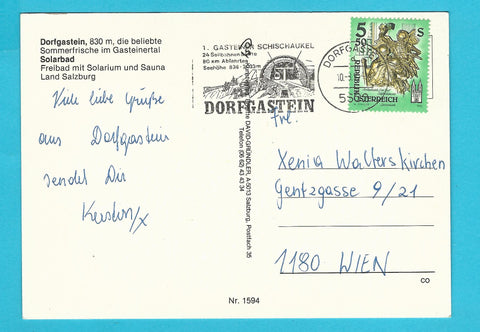 Dorfgastein, 830 m, die beliebte
Sommerfrische im Gasteinertal
Solarbad
Freibad mit Solarium und Sauna
Land Salzburg
Viele liebe Grüße
aus Dorfgastein
sendet Dir
1. GASTEINER SCHISCHAUKEL
24 Seilbahnen
80 km Abfahrten
Seehöhe
DORFGASTEIN
DORFGAST
5
S
ÖSTERREICH
DAVID-GRÜNDLER, A-5013 Salzburg, Postfach 35
Telefon (06 62) 43 43 34
Frl.
Xenia Walterskirchen
Gentzgasse 9/21
1180 WIEN
CO
Nr. 1594